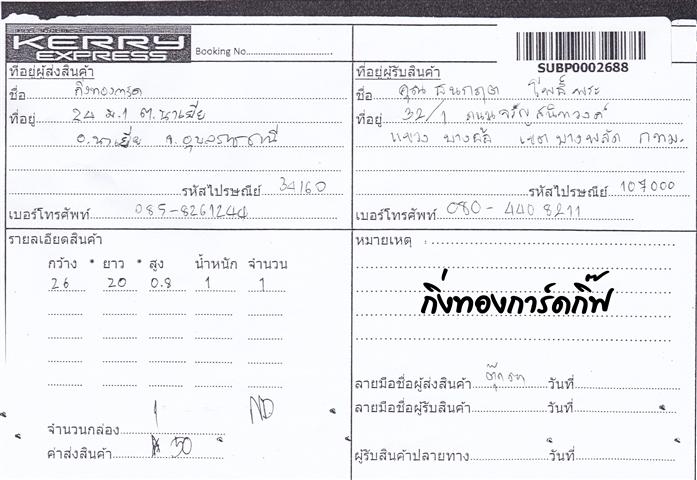 KERRY EXPRESS
Booking No.
SUBP0002688
ที่อยู่ผู้ส่งสินค้า
ชื่อ กิ่งทองการ์ด
ที่อยู่ 24 ม.1 ต.นาเยีย
อ.นาเยีย จ.อุบลราชธานี
รหัสไปรษณีย์ 34160
เบอร์โทรศัพท์ 085-8261244
ที่อยู่ผู้รับสินค้า
ชื่อ คุณ โพธิ์พระ
ที่อยู่ 32/1 ถนน จรัญสนิทวงศ์
แขวง บางพลัด เขต บางพลัด กทม.
รหัสไปรษณีย์ 107000
เบอร์โทรศัพท์ 080-440 8211
รายละเอียดสินค้า
กว้าง * ยาว * สูง น้ำหนัก จำนวน
26 20 0.8 1 1
จำนวนกล่อง 1 ND
ค่าส่งสินค้า 50
หมายเหตุ :
กิ่งทองการ์ดกิ๊ฟ
ลายมือชื่อผู้ส่งสินค้า วันที่
ลายมือชื่อผู้รับสินค้า วันที่
ผู้รับสินค้าปลายทาง วันที่